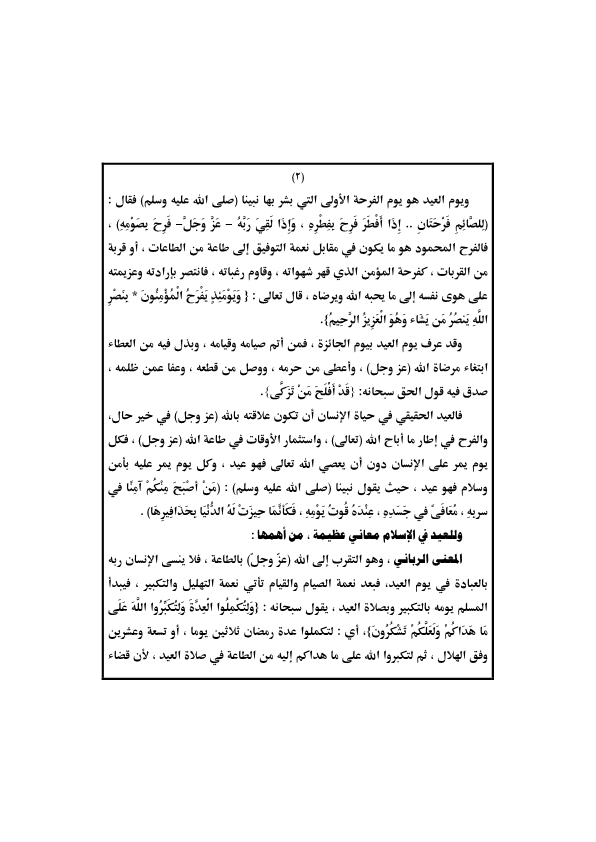 (٢)
ويوم العيد هو يوم الفرحة الأولى التي بشر بها نبينا (صلى الله عليه وسلم) فقال :
(لِلصَّائِمِ فَرْحَتَانِ .. إِذَا أَفْطَرَ فَرِحَ بِفِطْرِهِ ، وَإِذَا لَقِيَ رَبَّهُ – عَزَّ وَجَلَّ– فَرِحَ بِصَوْمِهِ) ،
فالفرح المحمود هو ما يكون في مقابل نعمة التوفيق إلى طاعة من الطاعات ، أو قربة
من القربات ، كفرحة المؤمن الذي قهر شهواته ، وقاوم رغباته ، فانتصر بإرادته وعزيمته
على هوى نفسه إلى ما يحبه الله ويرضاه ، قال تعالى : { وَيَوْمَئِذٍ يَفْرَحُ الْمُؤْمِنُونَ * بِنَصْرِ
اللَّهِ يَنصُرُ مَن يَشَاء وَهُوَ الْعَزِيزُ الرَّحِيمُ}.
وقد عرف يوم العيد بيوم الجائزة ، فمن أتم صيامه وقيامه ، وبذل فيه من العطاء
ابتغاء مرضاة الله (عز وجل) ، وأعطى من حرمه ، ووصل من قطعه ، وعفا عمن ظلمه ،
صدق فيه قول الحق سبحانه: {قَدْ أَفْلَحَ مَنْ تَزَكَّى}.
فالعيد الحقيقي في حياة الإنسان أن تكون علاقته بالله (عز وجل) في خير حال،
والفرح في إطار ما أباح الله (تعالى) ، واستثمار الأوقات في طاعة الله (عز وجل) ، فكل
يوم يمر على الإنسان دون أن يعصي الله تعالى فهو عيد ، وكل يوم يمر عليه بأمن
وسلام فهو عيد ، حيث يقول نبينا (صلى الله عليه وسلم) : (مَنْ أَصْبَحَ مِنْكُمْ آمِنًا في
سربِهِ ، مُعَافًى في جَسَدِهِ ، عِنْدَهُ قُوتُ يَوْمِهِ ، فَكَأَنَّمَا حِيزَتْ لَهُ الدُّنْيَا بِحَذَافِيرِهَا) .
وللعيد في الإسلام معاني عظيمة ، من أهمها :
المعنى الرباني ، وهو التقرب إلى الله (عزّ وجلّ) بالطاعة ، فلا ينسى الإنسان ربه
بالعبادة في يوم العيد، فبعد نعمة الصيام والقيام تأتي نعمة التهليل والتكبير ، فيبدأ
المسلم يومه بالتكبير وبصلاة العيد ، يقول سبحانه : {وَلِتُكْمِلُوا الْعِدَّةَ وَلِتُكَبِّرُوا اللَّهَ عَلَى
مَا هَدَاكُمْ وَلَعَلَّكُمْ تَشْكُرُونَ}، أي : لتكملوا عدة رمضان ثلاثين يوما ، أو تسعة وعشرين
وفق الهلال ، ثم لتكبروا الله على ما هداكم إليه من الطاعة في صلاة العيد ، لأن قضاء